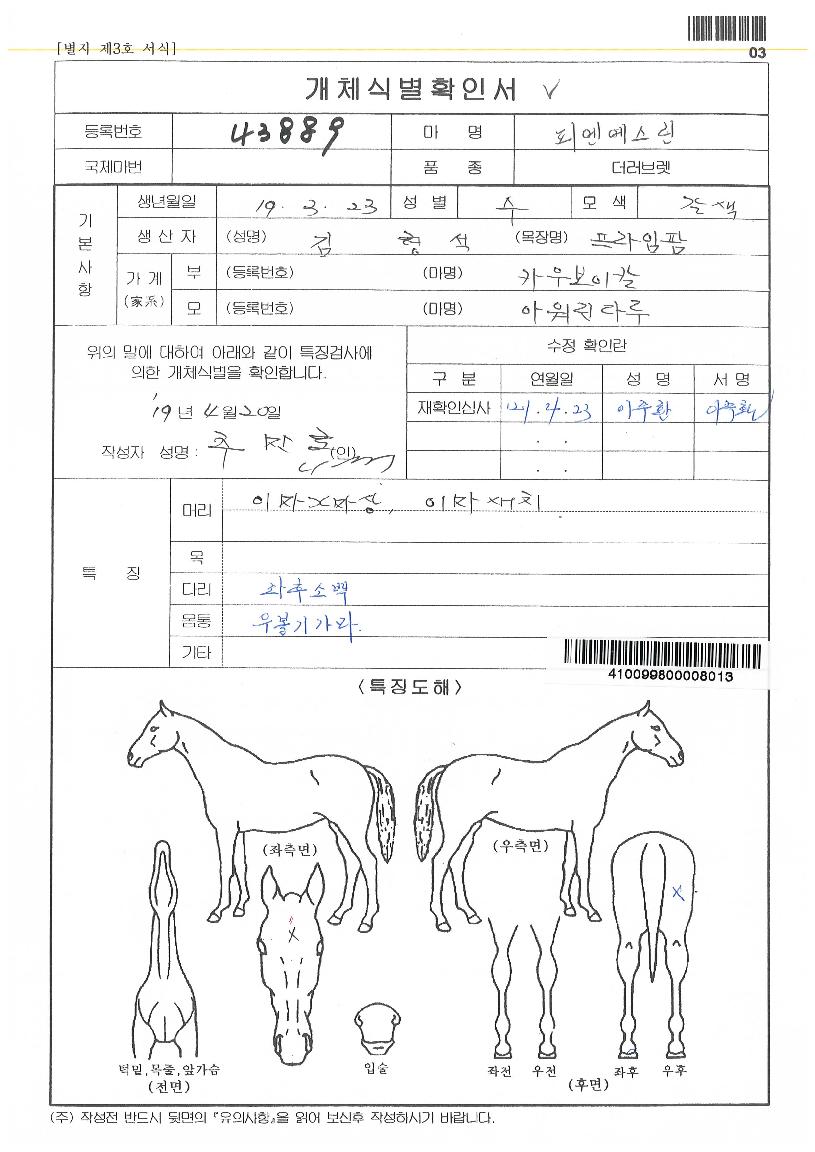 [별지 제3호 서식]
03
개체식별확인서 ✓
등록번호 43889 마 명 피엔예스린
국제마번 품 종 더러브렛
기본사항
생년월일 19. 3. 23 성 별 수 모 색 갈색
생 산 자 (성명) 김 형 석 (목장명) 프라임팜
가 계 (家系) 부 (등록번호) (마명) 카우보이칼
모 (등록번호) (마명) 아워린다루
위의 말에 대하여 아래와 같이 특징검사에
의한 개체식별을 확인합니다.
'19년 4월20일
작성자 성명 : (인)
수정 확인란
구 분 연월일 성 명 서 명
재확인심사 '21.4.23 이주환 이주환
. .
. .
특 징
머리 이마X마상, 이마새치
목
다리 좌후소백
몸통 우볼기가마.
기타
410099800008013
<특징도해>
(좌측면)
(우측면)
턱밑,목줄,앞가슴
(전면)
입술
좌전 우전
좌후 우후
(후면)
(주) 작성전 반드시 뒷면의 『유의사항』을 읽어 보신후 작성하시기 바랍니다.